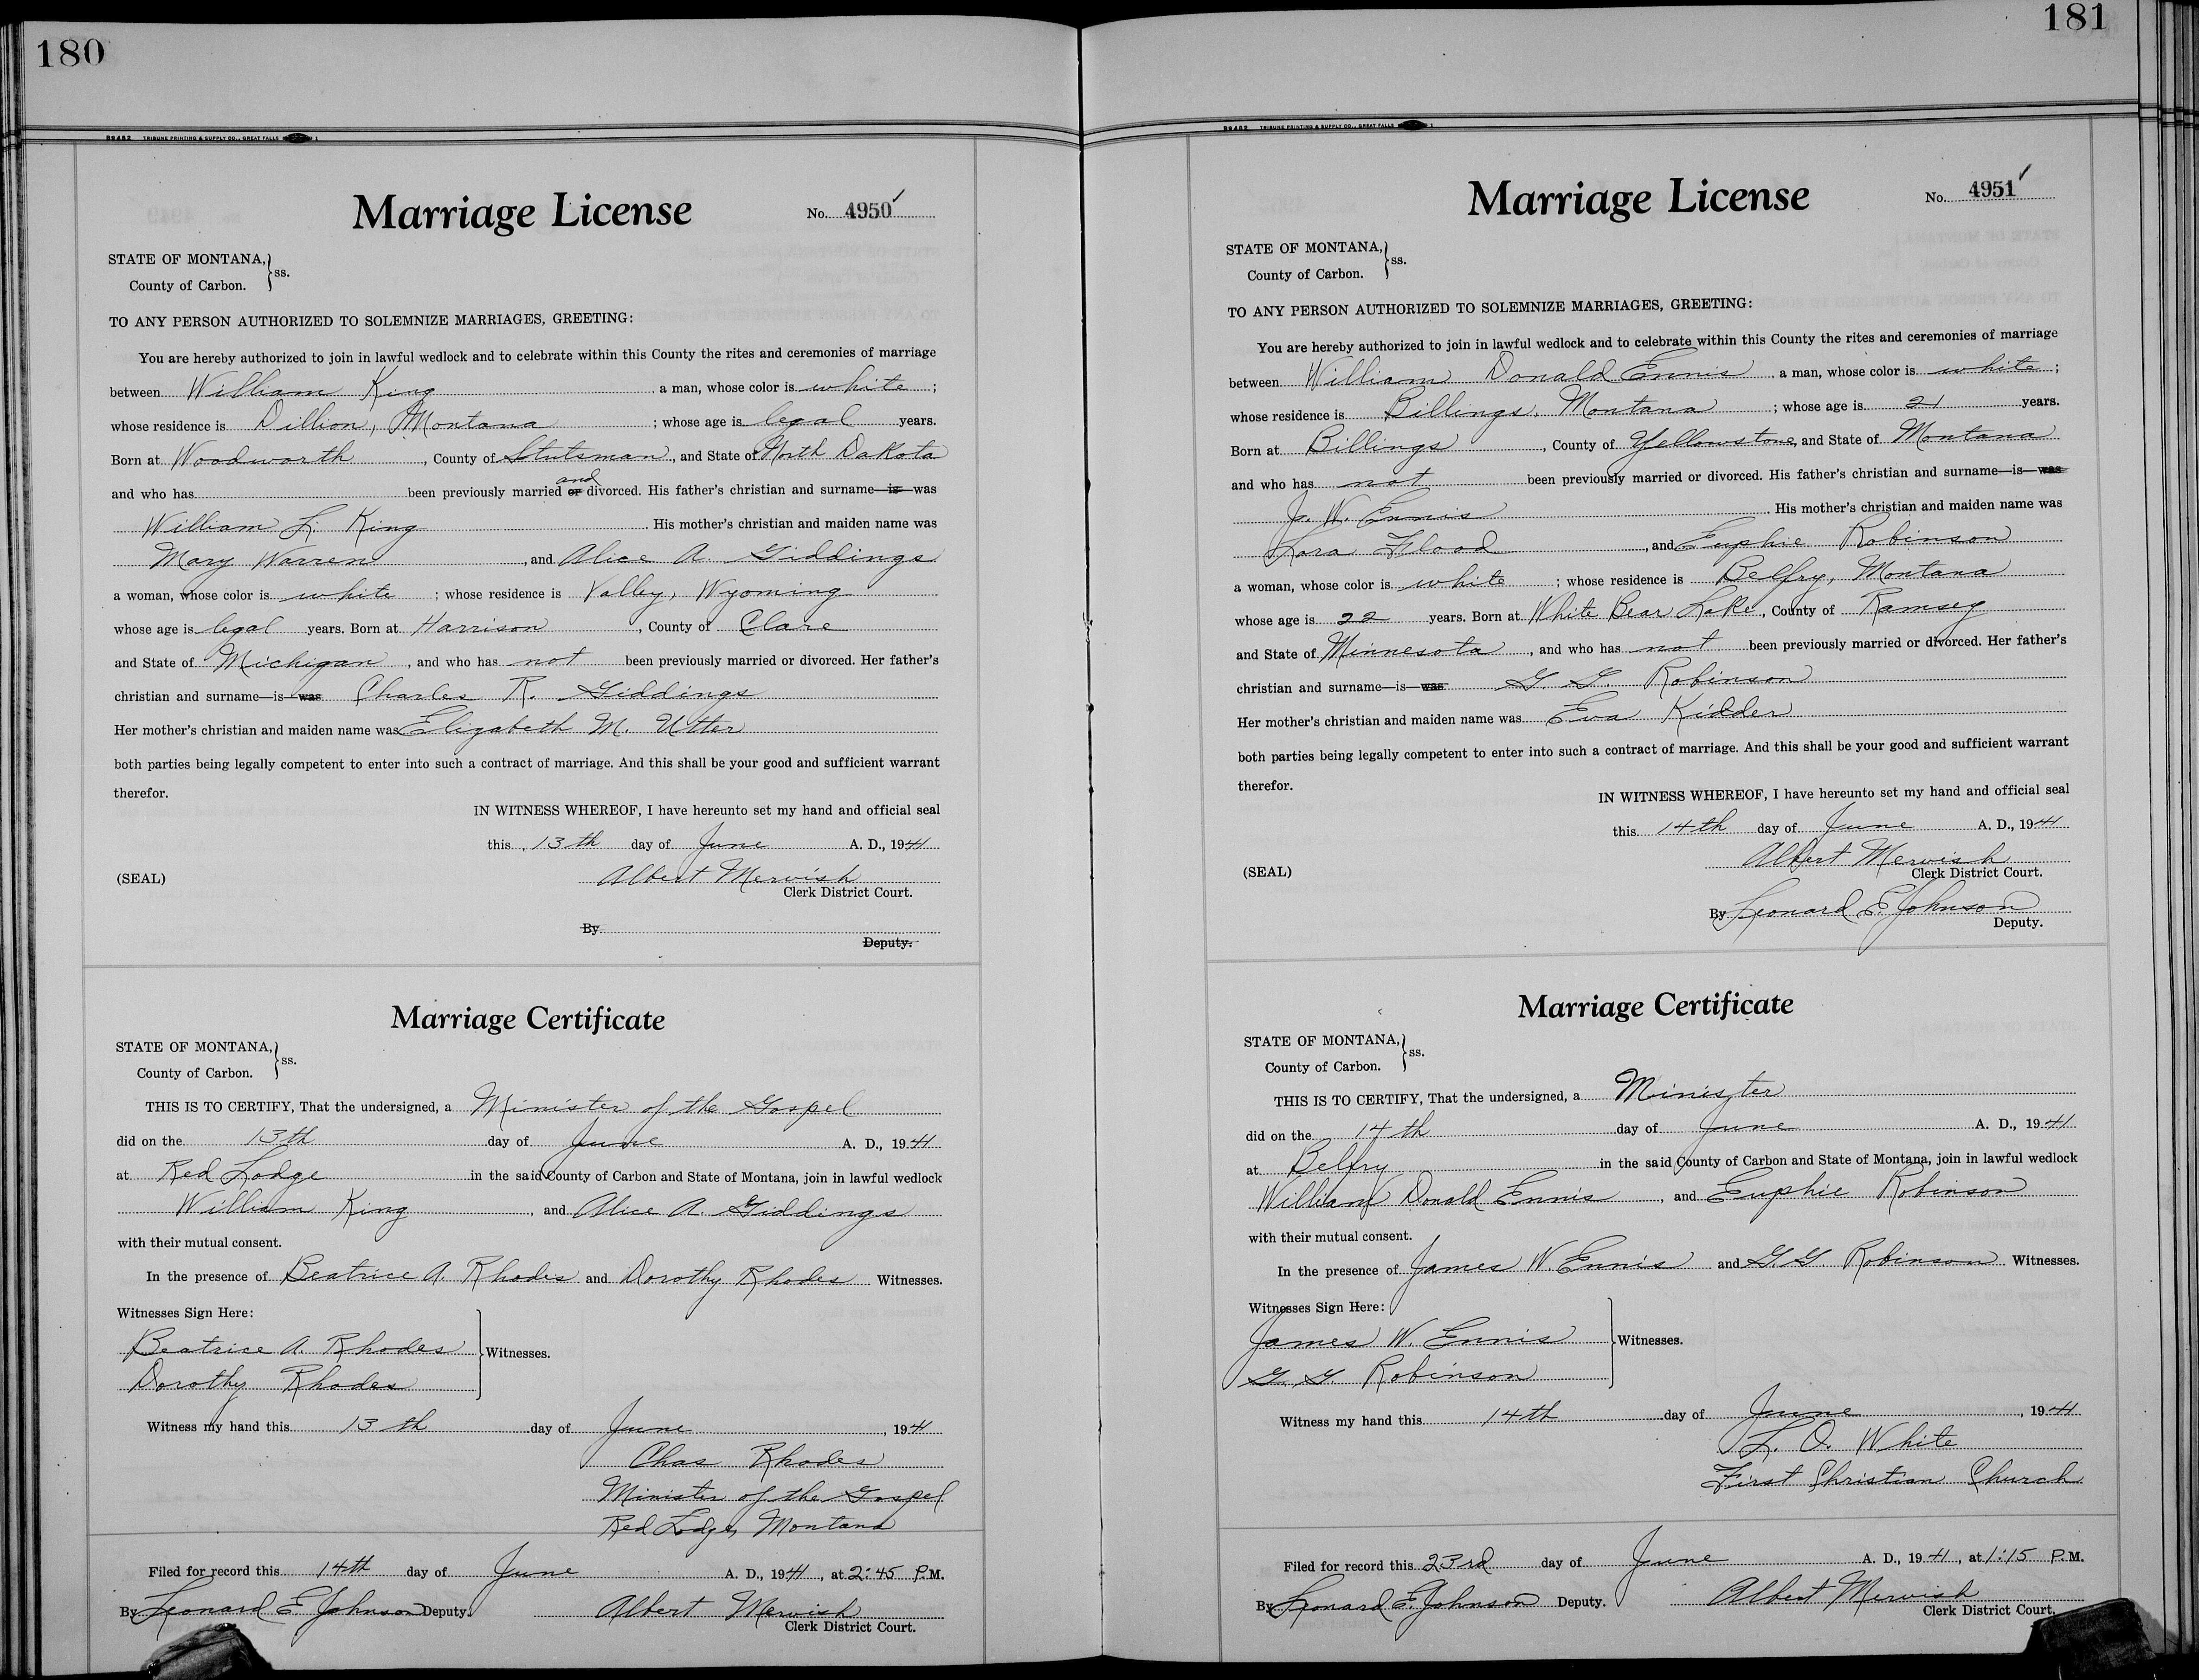 180
89482 TRIBUNE PRINTING & SUPPLY CO., GREAT FALLS
Marriage License
No. 4950
STATE OF MONTANA,
County of Carbon. } ss.
TO ANY PERSON AUTHORIZED TO SOLEMNIZE MARRIAGES, GREETING:
You are hereby authorized to join in lawful wedlock and to celebrate within this County the rites and ceremonies of marriage
between William King a man, whose color is white ;
whose residence is Dillion, Montana ; whose age is legal years.
Born at Woodworth , County of Stutsman , and State of North Dakota
and who has been previously married or and divorced. His father's christian and surname—is—was
William L. King His mother's christian and maiden name was
Mary Warren , and Alice A. Giddings
a woman, whose color is white ; whose residence is Valley, Wyoming
whose age is legal years. Born at Harrison , County of Clare
and State of Michigan , and who has not been previously married or divorced. Her father's
christian and surname—is—was Charles R. Giddings
Her mother's christian and maiden name was Elizabeth M. Utter
both parties being legally competent to enter into such a contract of marriage. And this shall be your good and sufficient warrant
therefor.
IN WITNESS WHEREOF, I have hereunto set my hand and official seal
this 13th day of June A. D., 1941
(SEAL) Albert Mervish
Clerk District Court.
By
Deputy.
Marriage Certificate
STATE OF MONTANA,
County of Carbon. } ss.
THIS IS TO CERTIFY, That the undersigned, a Minister of the Gospel
did on the 13th day of June A. D., 1941
at Red Lodge in the said County of Carbon and State of Montana, join in lawful wedlock
William King , and Alice A. Giddings
with their mutual consent.
In the presence of Beatrice A. Rhodes and Dorothy Rhodes Witnesses.
Witnesses Sign Here:
Beatrice A. Rhodes
Dorothy Rhodes } Witnesses.
Witness my hand this 13th day of June , 1941
Chas Rhodes
Minister of the Gospel
Red Lodge, Montana
Filed for record this 14th day of June A. D., 1941 , at 2:45 P.M.
By Leonard E. Johnson Deputy. Albert Mervish
Clerk District Court.
181
89482 TRIBUNE PRINTING & SUPPLY CO., GREAT FALLS
Marriage License
No. 4951
STATE OF MONTANA,
County of Carbon. } ss.
TO ANY PERSON AUTHORIZED TO SOLEMNIZE MARRIAGES, GREETING:
You are hereby authorized to join in lawful wedlock and to celebrate within this County the rites and ceremonies of marriage
between William Donald Ennis a man, whose color is white ;
whose residence is Billings, Montana ; whose age is 21 years.
Born at Billings , County of Yellowstone, and State of Montana
and who has not been previously married or divorced. His father's christian and surname—is—was
J. W. Ennis His mother's christian and maiden name was
Lara Flood , and Euphie Robinson
a woman, whose color is white ; whose residence is Belfry, Montana
whose age is 22 years. Born at White Bear Lake , County of Ramsey
and State of Minnesota , and who has not been previously married or divorced. Her father's
christian and surname—is—was G. G. Robinson
Her mother's christian and maiden name was Eva Kidder
both parties being legally competent to enter into such a contract of marriage. And this shall be your good and sufficient warrant
therefor.
IN WITNESS WHEREOF, I have hereunto set my hand and official seal
this 14th day of June A. D., 1941
(SEAL) Albert Mervish
Clerk District Court.
By Leonard E. Johnson
Deputy.
Marriage Certificate
STATE OF MONTANA,
County of Carbon. } ss.
THIS IS TO CERTIFY, That the undersigned, a Minister
did on the 14th day of June A. D., 1941
at Belfry in the said County of Carbon and State of Montana, join in lawful wedlock
William Donald Ennis , and Euphie Robinson
with their mutual consent.
In the presence of James W. Ennis and G. G. Robinson Witnesses.
Witnesses Sign Here:
James W. Ennis
G. G. Robinson } Witnesses.
Witness my hand this 14th day of June , 1941
L. O. White
First Christian Church
Filed for record this 23rd day of June A. D., 1941 , at 1:15 P.M.
By Leonard E. Johnson Deputy. Albert Mervish
Clerk District Court.